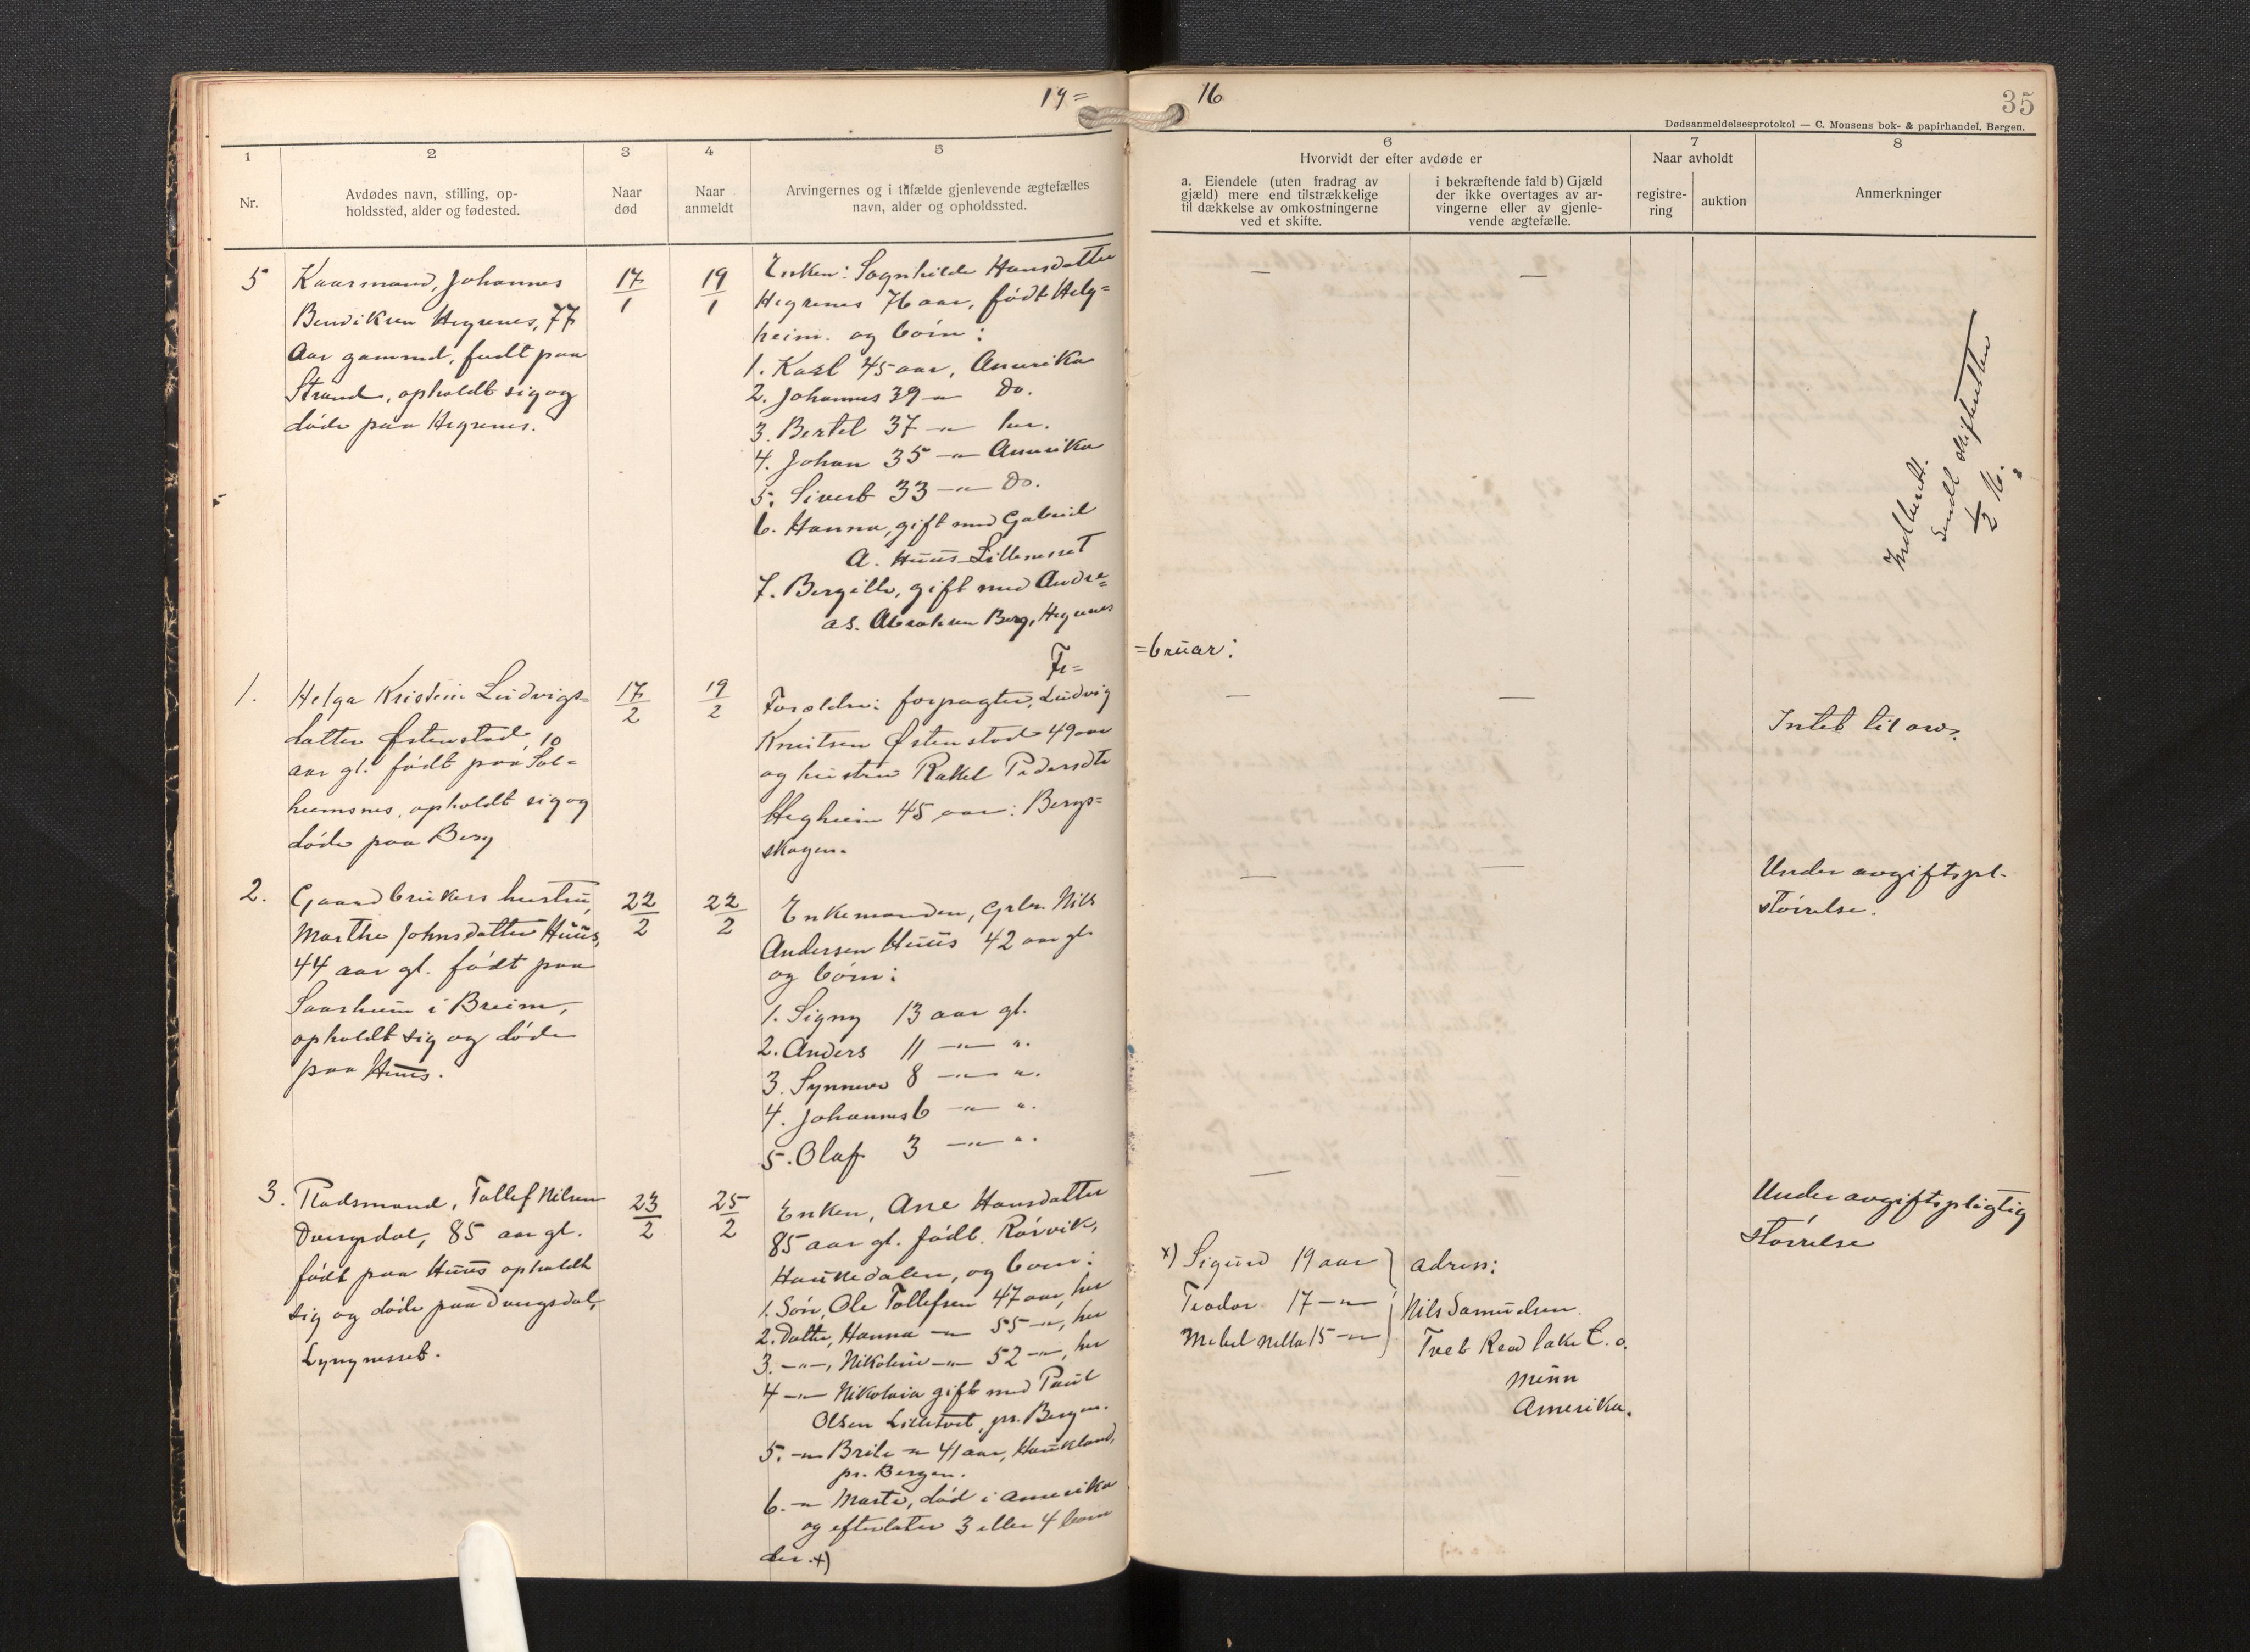 19=
16
35
Dødsanmeldelsesprotokol — C. Monsens bok- & papirhandel, Bergen.
1
2
3
4
5
6
7
8
Nr.
Avdødes navn, stilling, op-
holdssted, alder og fødested.
Naar
død
Naar
anmeldt
Arvingernes og i tilfælde gjenlevende ægtefælles
navn, alder og opholdssted.
Hvorvidt der efter avdøde er
a. Eiendele (uten fradrag av
gjæld) mere end tilstrækkelige
til dækkelse av omkostningerne
ved et skifte.
i bekræftende fald b) Gjæld
der ikke overtages av ar-
vingerne eller av gjenle-
vende ægtefælle.
Naar avholdt
registre-
ring
auktion
Anmerkninger
5
Kaarmand, Johannes
Bendiksen Hegrenes, 77
Aar gammel, født paa
Strand, opholdt sig og
døde paa Hegrenes.
17/1
19/1
Enken: Sognhilde Hansdatter
Hegrenes 76 aar, født Helg=
heim. og børn:
1. Karl 45 aar, Amerika
2. Johannes 39 -"- Do.
3. Bertel 37 -"- her.
4. Johan 35 -"- Amerika
5. Sivert 33 -"- Do.
6. Hanna, gift med Gabriel
A. Huus Lillenesset
7. Bergitte, gift med Andre=
as. Abrahsen Berg, Hegrenes
—
—
Indberett.
Sendt skifteretten
1/2 16.
Fe=
=bruar:
1.
Helga Kristine Ludvigs=
datter Østenstad, 10
aar gl. født paa Sol=
heimsnes, opholdt sig og
døde paa Berg
17/2
19/2
Forældre: forpagter, Ludvig
Knutsen Østenstad 49 aar
og hustru Rakel Pedersdtr
Hegheim 45 aar: Bergs=
skogen.
—
—
Intet til arv.
2.
Gaardbrukers hustru,
Marthe Johnsdatter Huus,
44 aar gl. født paa
i Breim,
opholdt sig og døde
paa Huus.
22/2
22/2
Enkemanden, Grbr. Nils
Andersen Huus 42 aar gl.
og børn:
1. Signy 13 aar gl.
2. Anders 11 -"- ".
3. Synneve 8 -"- ".
4. Johannes 6 -"- ".
5. Olaf 3 -"- ".
—
—
Under avgiftspl.
størrelse.
3.
Pladsmand, Tollef Nilsen
Dvergsdal, 85 aar gl.
født paa Huus opholdt
sig og døde paa Dvergsdal,
Lyngnesset.
23/2
25/2
Enken, Ane Hansdatter
85 aar gl. født. Rørvik,
Haukedalen, og børn:
1. Søn, Ole Tollefsen 47 aar, her
2. Datter, Hanna -"- 55 -"-, her
3. -"-, Nikoline -"- 52 -"-, her
4 -"- Nikolaia gift med Paul
Olsen Lilletvet, pr. Bergen.
5. -"- Brite -"- 41 aar, Haukland,
pr. Bergen.
6. -"- Marte, død i Amerika
og efterlater 3 eller 4 børn
der. x)
—
x) Sigurd 19 aar
Teodor 17 -"-
Mebel Nella 15 -"-
adress:
Nils Samuelsen
Tvet Read lake C. o.
Minn
Amerika.
Under avgiftspligtig
størrelse